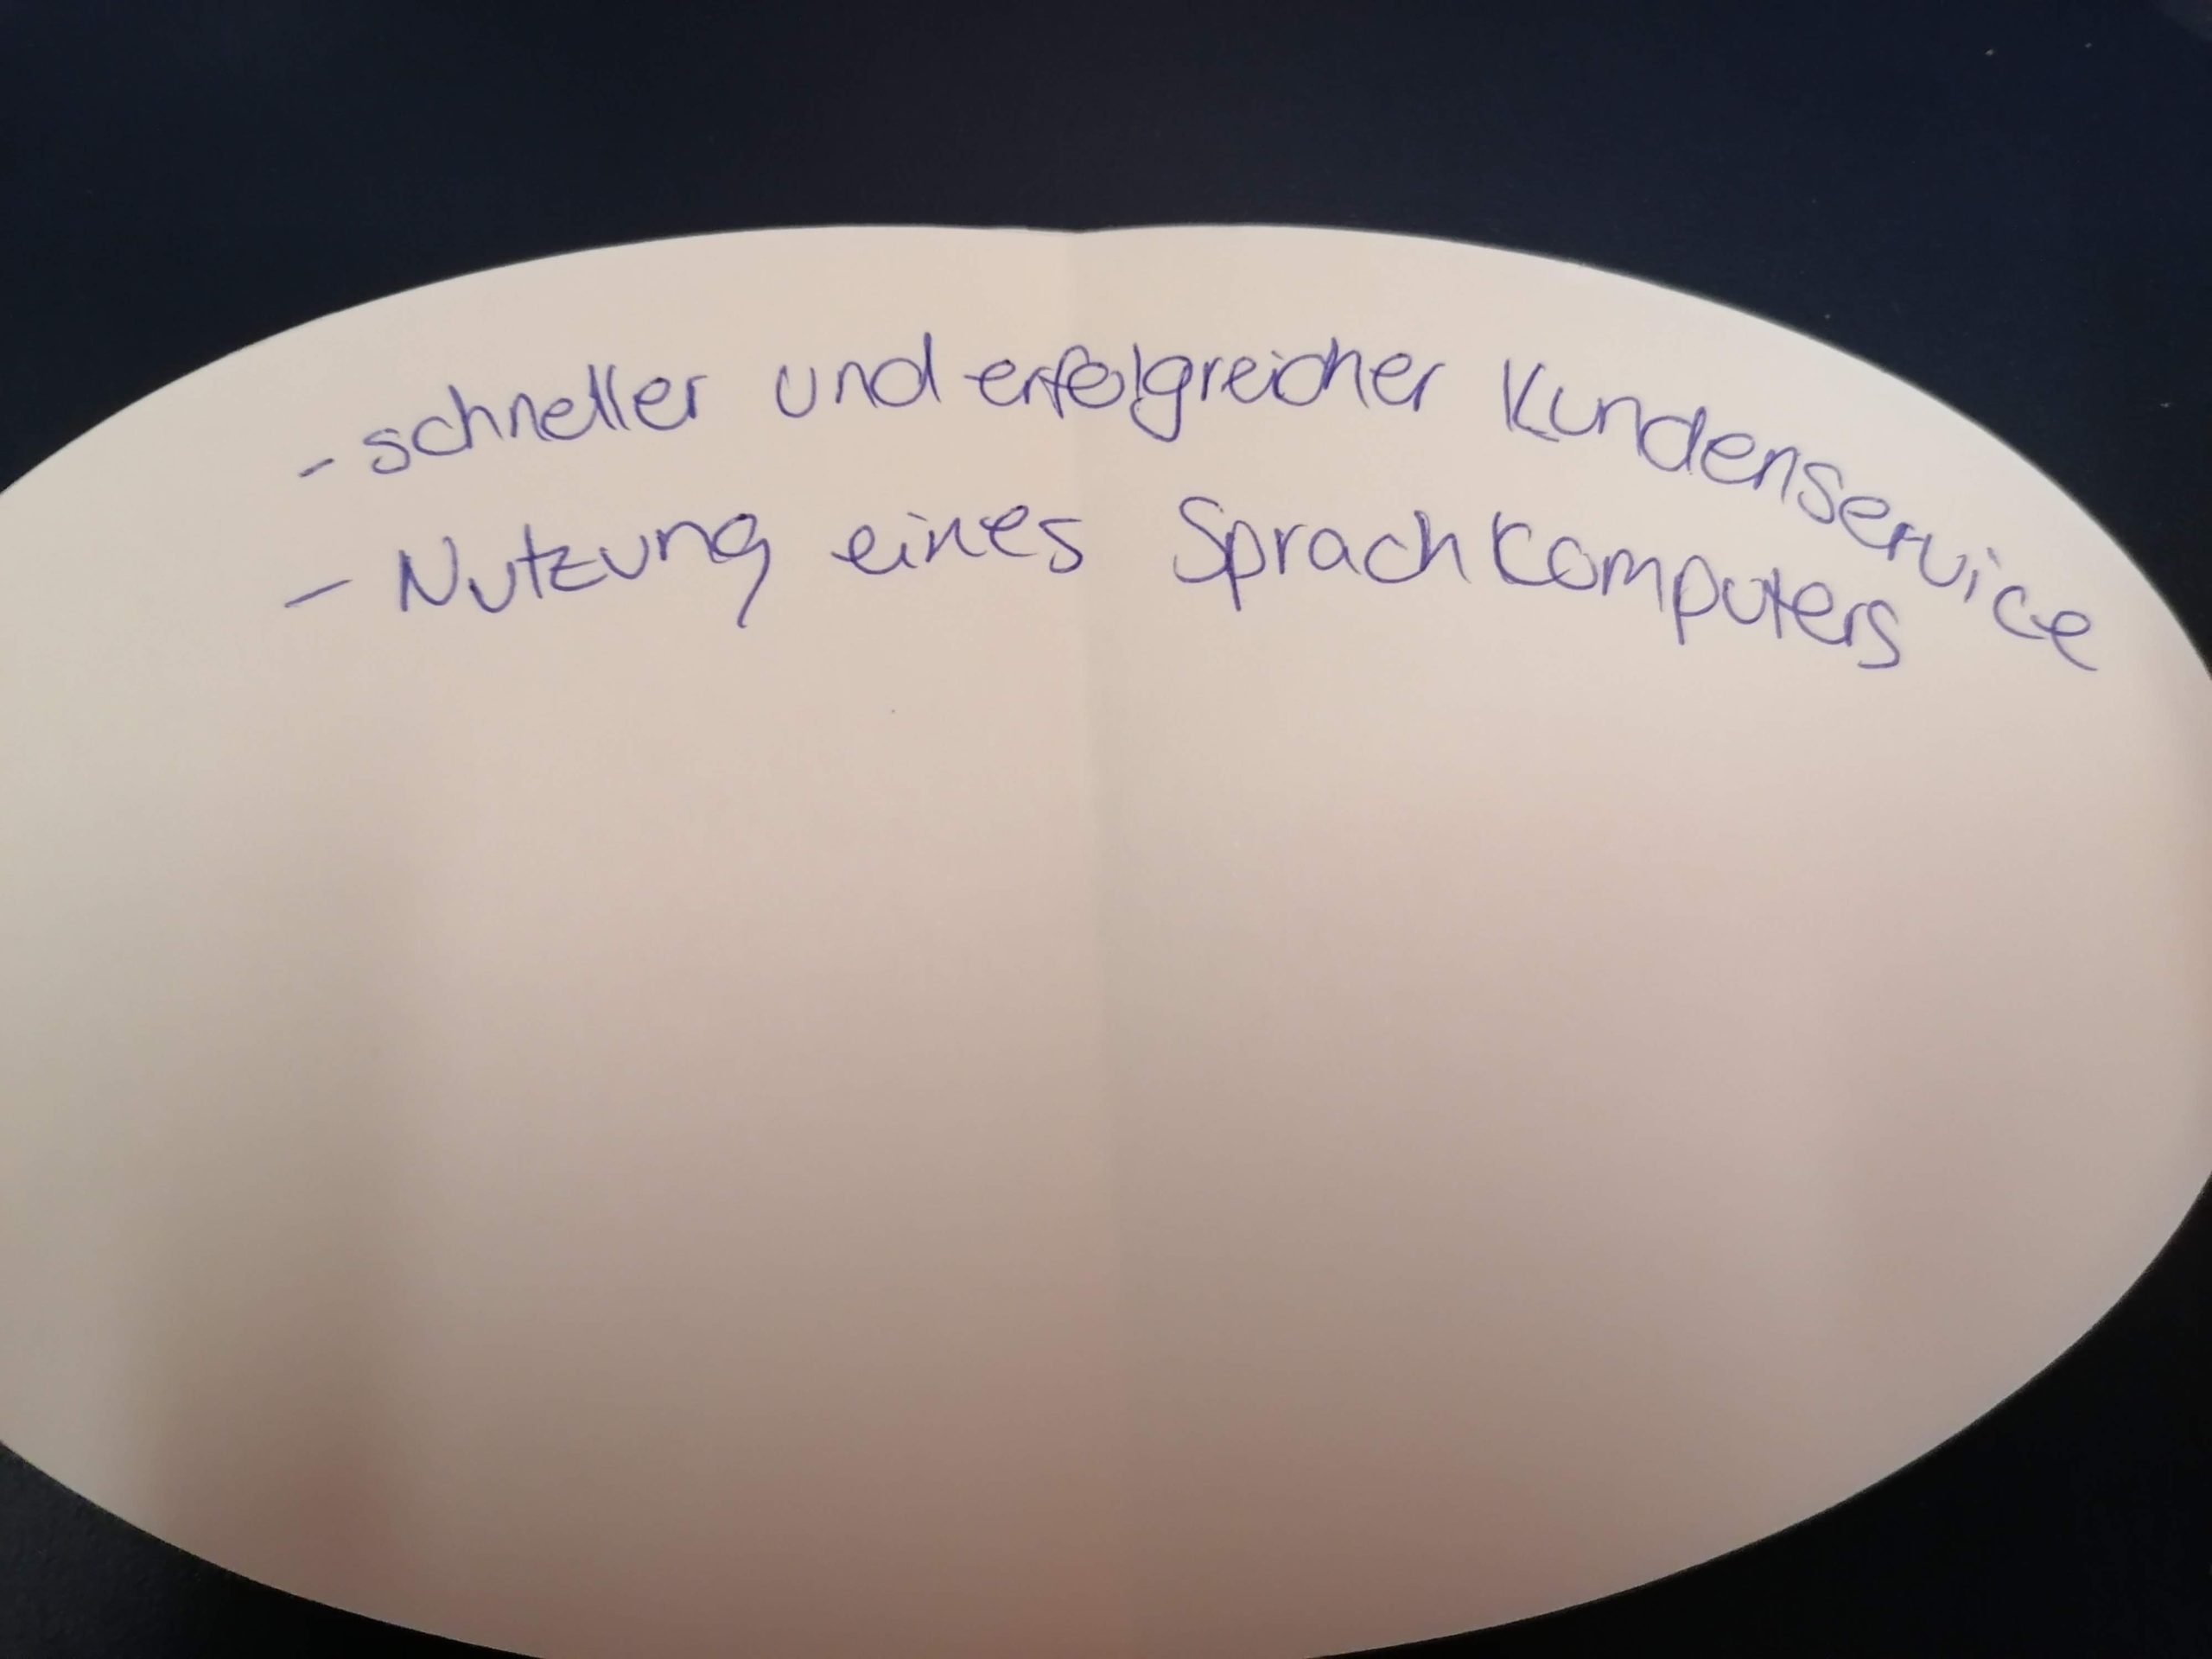 - schneller und erfolgreicher Kundenservice
- Nutzung eines Sprachkomputers